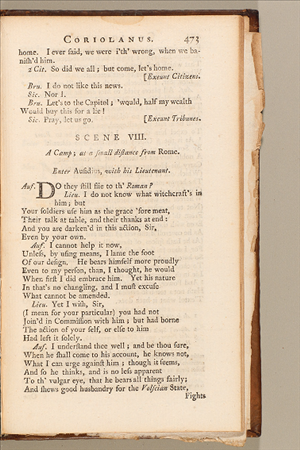 CORIOLANUS. 473
home. I ever said, we were i'th' wrong, when we ba-
nish'd him.
2 Cit. So did we all; but come, let's home.
[Exeunt Citizens.
Bru. I do not like this news.
Sic. Nor I.
Bru. Let's to the Capitol; 'wou'd, half my wealth
Would buy this for a lie!
Sic. Pray, let us go. [Exeunt Tribunes.
SCENE VIII.
A Camp; at a small distance from Rome.
Enter Aufidius, with his Lieutenant.
Auf. DO they still flie to th' Roman?
Lieu. I do not know what witchcraft's in
him; but
Your soldiers use him as the grace 'fore meat,
Their talk at table, and their thanks at end:
And you are darken'd in this action, Sir,
Even by your own.
Auf. I cannot help it now,
Unless, by using means, I lame the foot
Of our design. He bears himself more proudly
Even to my person, than, I thought, he would
When first I did embrace him. Yet his nature
In that's no changling, and I must excuse
What cannot be amended.
Lieu. Yet I wish, Sir,
(I mean for your particular) you had not
Join'd in Commission with him; but had borne
The action of your self, or else to him
Had left it solely.
Auf. I understand thee well; and be thou sure,
When he shall come to his account, he knows not,
What I can urge against him; though it seems,
And so he thinks, and is no less apparent
To th' vulgar eye, that he bears all things fairly;
And shews good husbandry for the Volscian State,
Fights